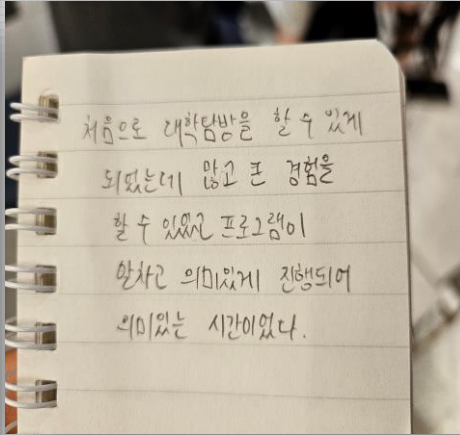 처음으로 대학탐방을 할 수 있게
되었는데 많고 큰 경험을
할 수 있었고 프로그램이
알차고 의미있게 진행되어
의미있는 시간이었다.